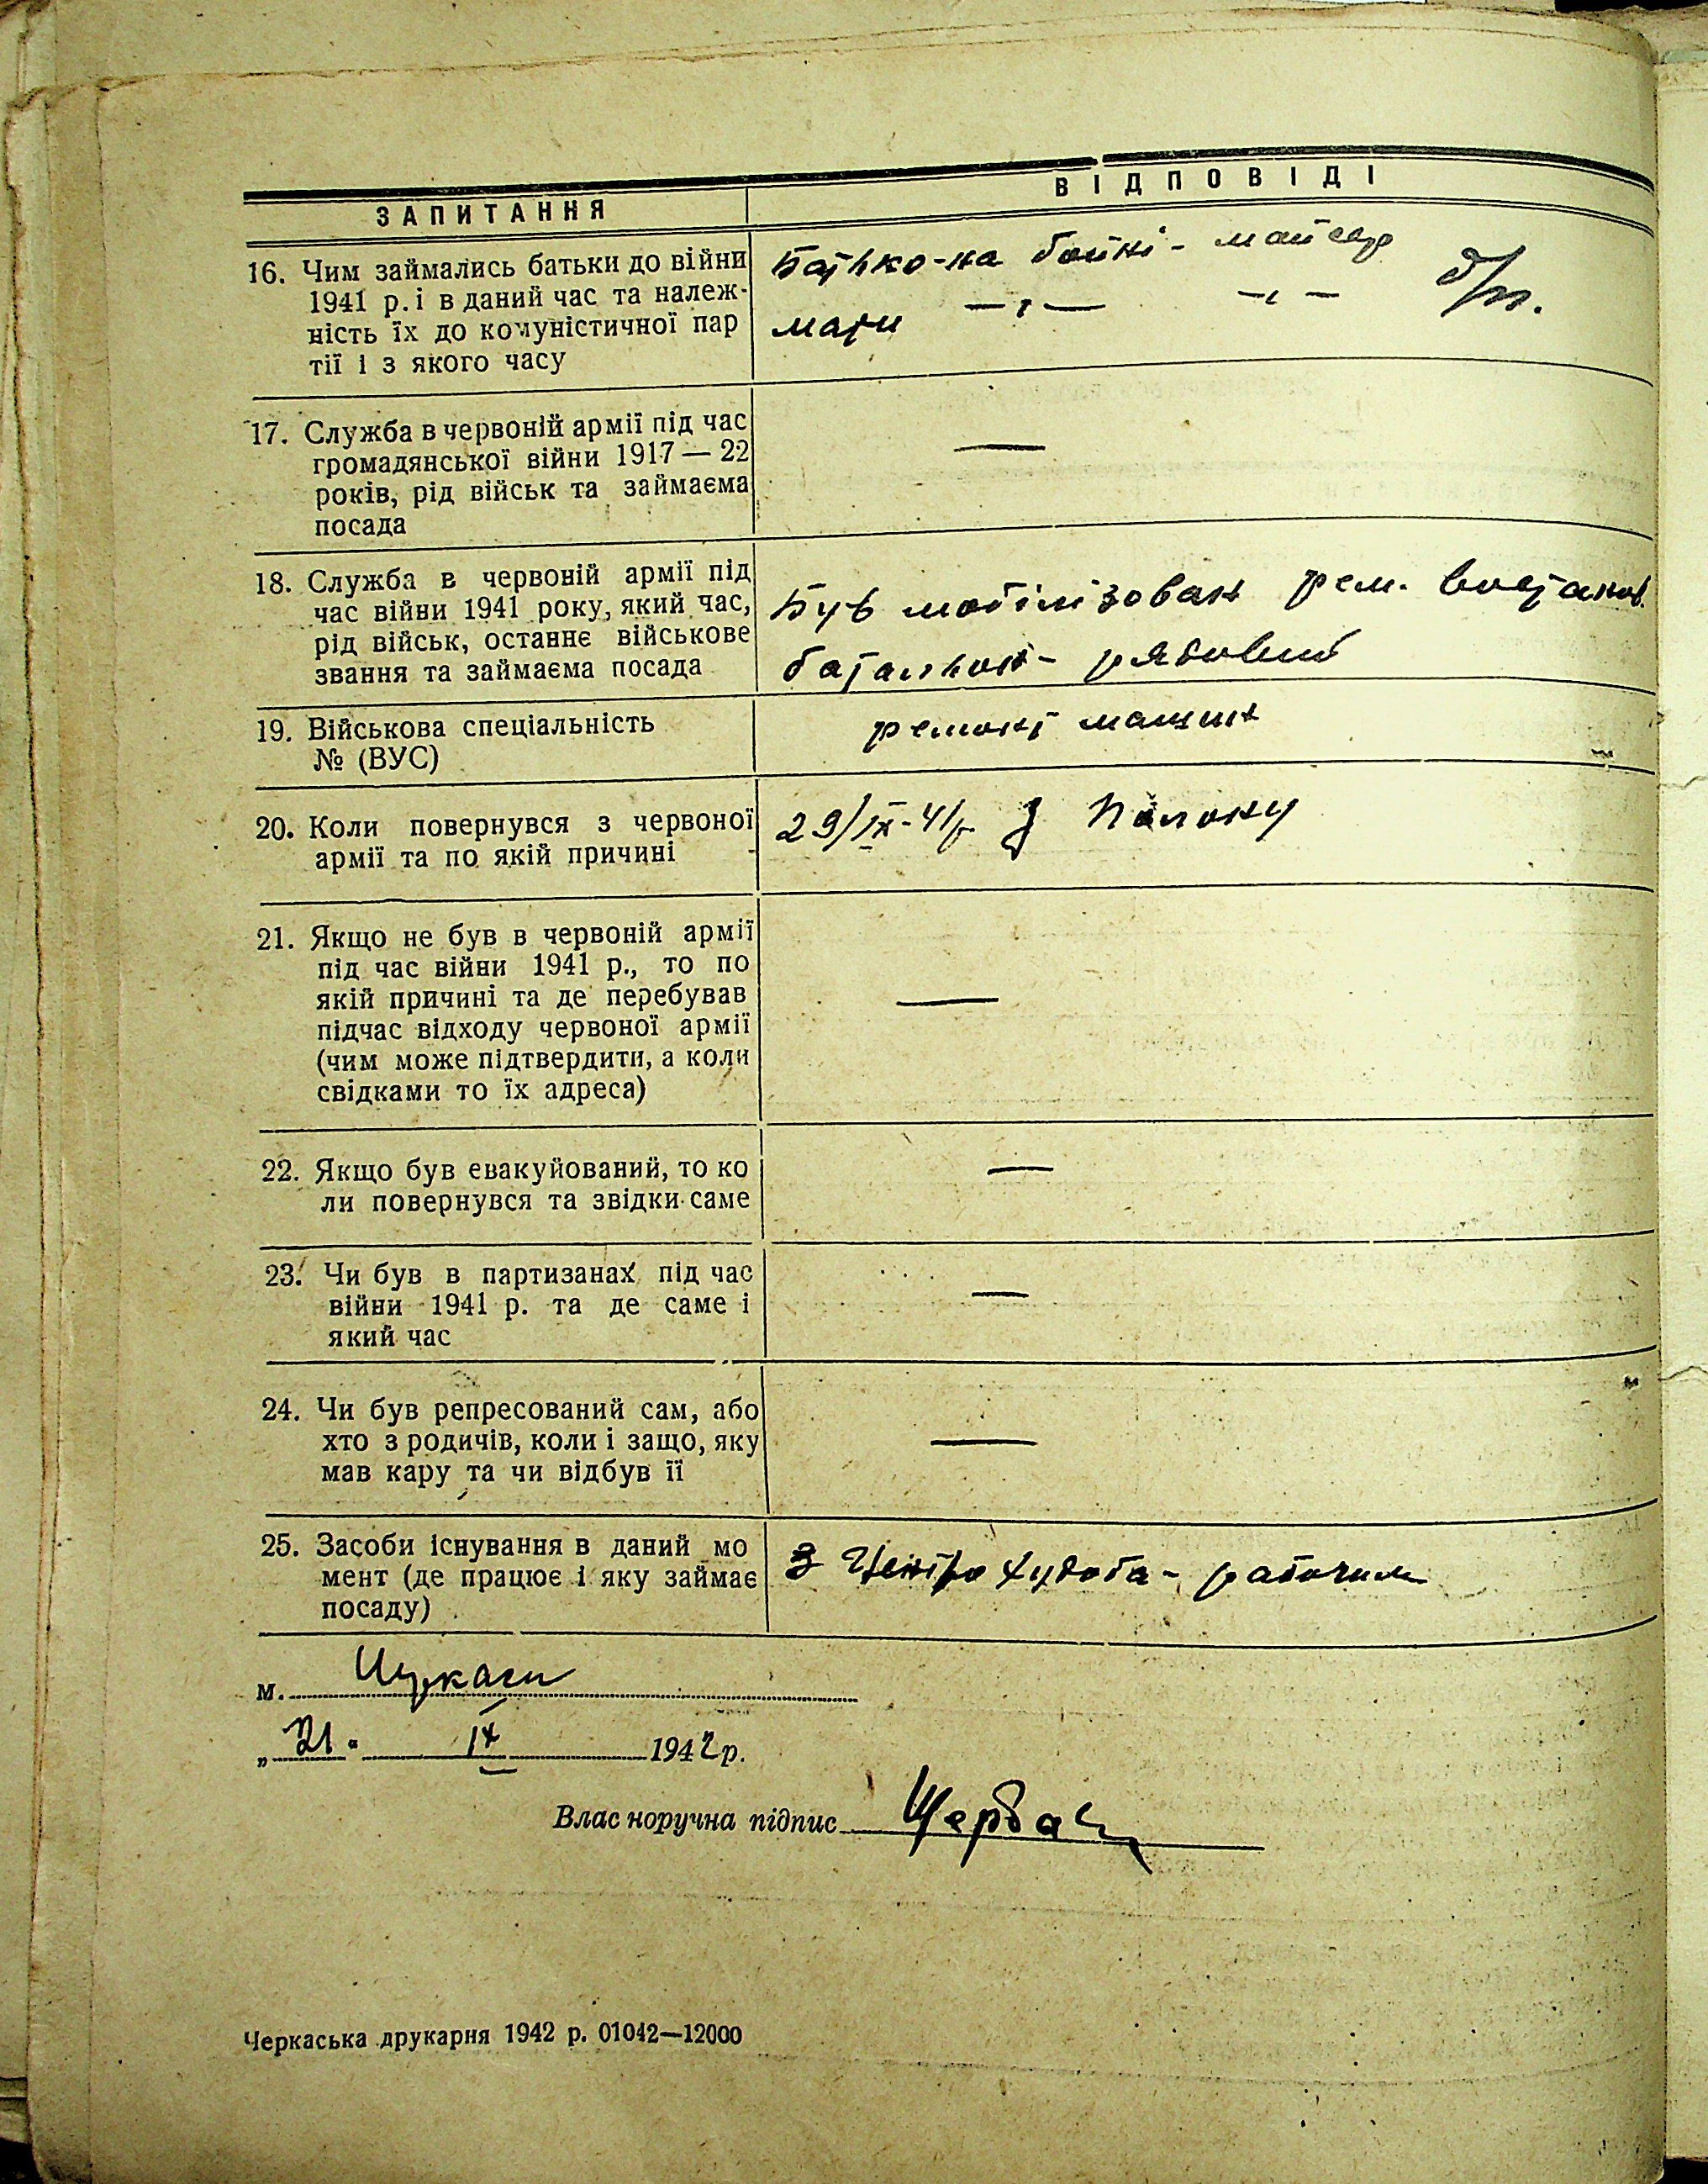 ЗАПИТАННЯ
ВІДПОВІДІ
16. Чим займались батьки до війни
1941 р. і в даний час та належ-
ність їх до комуністичної пар
тії і з якого часу
Батько-на бойні- майстер
мати —„— —„— б/п.
17. Служба в червоній армії під час
громадянської війни 1917 — 22
років, рід військ та займаєма
посада
—
18. Служба в червоній армії під
час війни 1941 року, який час,
рід військ, останнє військове
звання та займаєма посада
Був мобілізован рем. востанов.
батальон- рядовий
19. Військова спеціальність
№ (ВУС)
ремонт машин
20. Коли повернувся з червоної
армії та по якій причині
29/IX-41р. З Полону
21. Якщо не був в червоній армії
під час війни 1941 р., то по
якій причині та де перебував
підчас відходу червоної армії
(чим може підтвердити, а коли
свідками то їх адреса)
—
22. Якщо був евакуйований, то ко
ли повернувся та звідки саме
—
23. Чи був в партизанах під час
війни 1941 р. та де саме і
який час
—
24. Чи був репресований сам, або
хто з родичів, коли і защо, яку
мав кару та чи відбув її
—
25. Засоби існування в даний мо
мент (де працює і яку займає
посаду)
З Центро Худоба- рабочим
м. Черкаси
„21" IX 1942 р.
Влас норучна підпис Щербац
Черкаська друкарня 1942 р. 01042—12000